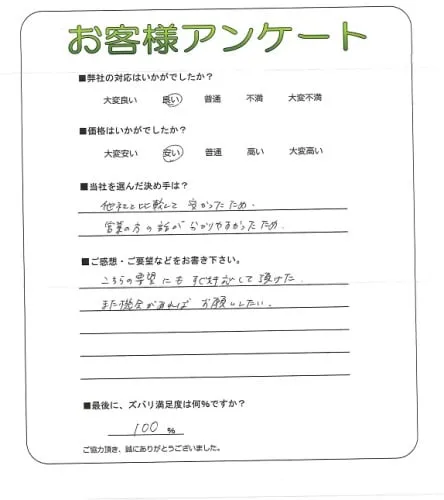 お客様アンケート
■弊社の対応はいかがでしたか？
大変良い 良い 普通 不満 大変不満
■価格はいかがでしたか？
大変安い 安い 普通 高い 大変高い
■当社を選んだ決め手は？
他社と比較して 安かったため.
営業の方の話が 分かりやすかったため.
■ご感想・ご要望などをお書き下さい。
こちらの要望にも すぐ対応して頂けた.
また機会があれば お願いしたい.
■最後に、ズバリ満足度は何%ですか？
100 %
ご協力頂き、誠にありがとうございました。